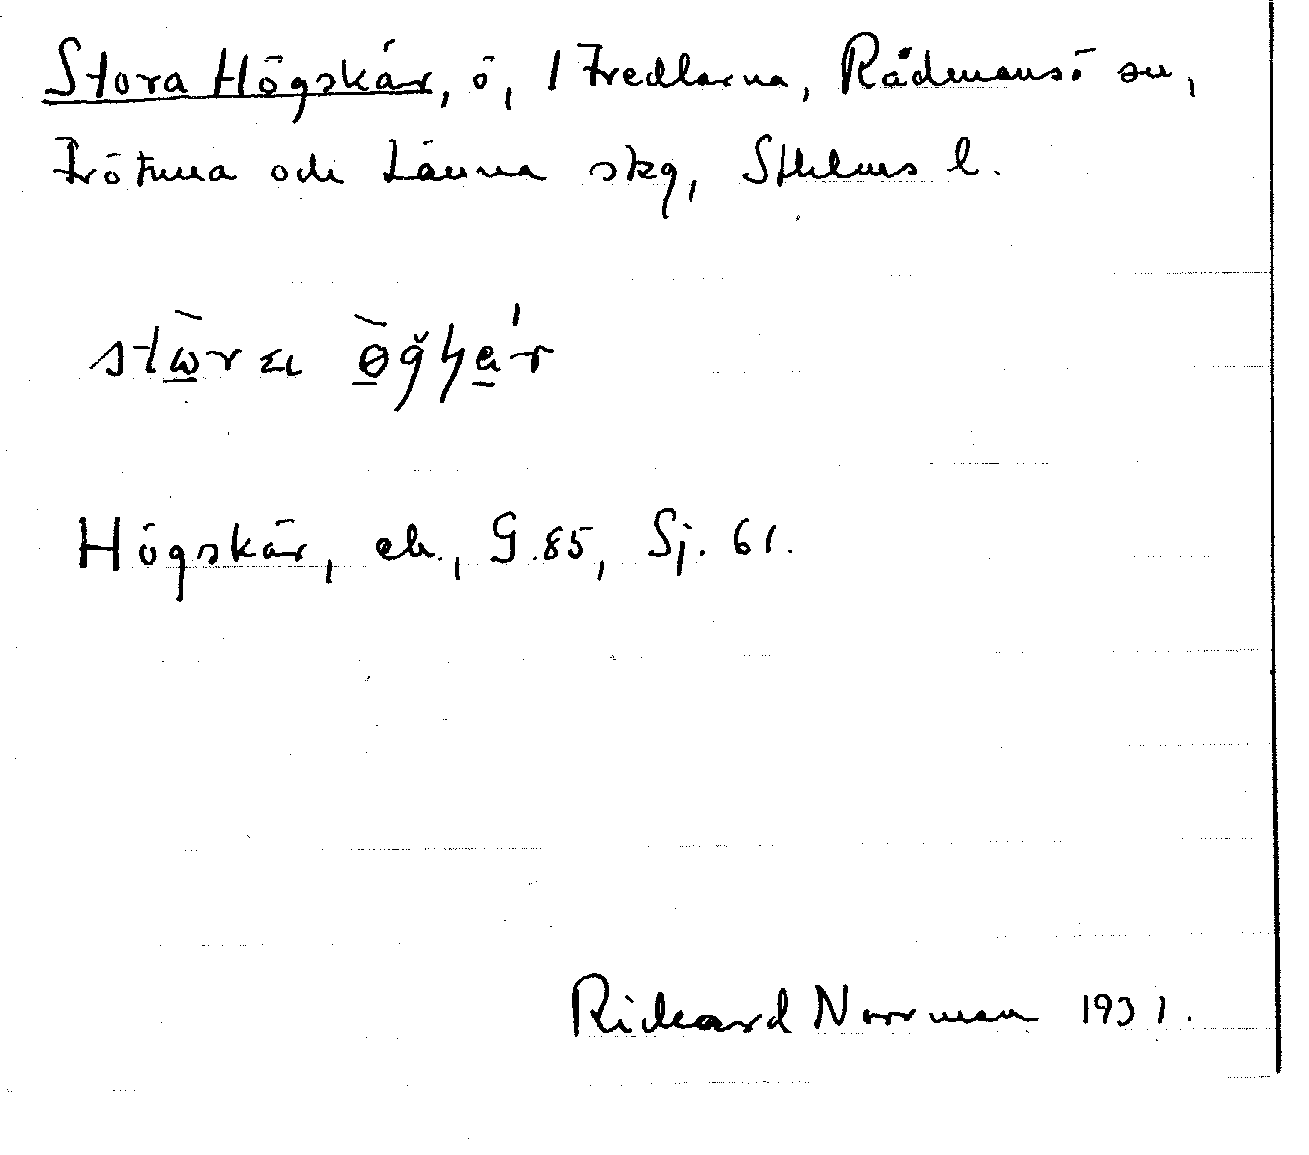 Stora Högskär, ö, i Fredlarna, Rådmansö sn,
Frötuna och Länna skg, Sthlms l.
Högskär, ek., G.85, Sj. 61.
Rickard Norrman 1931.